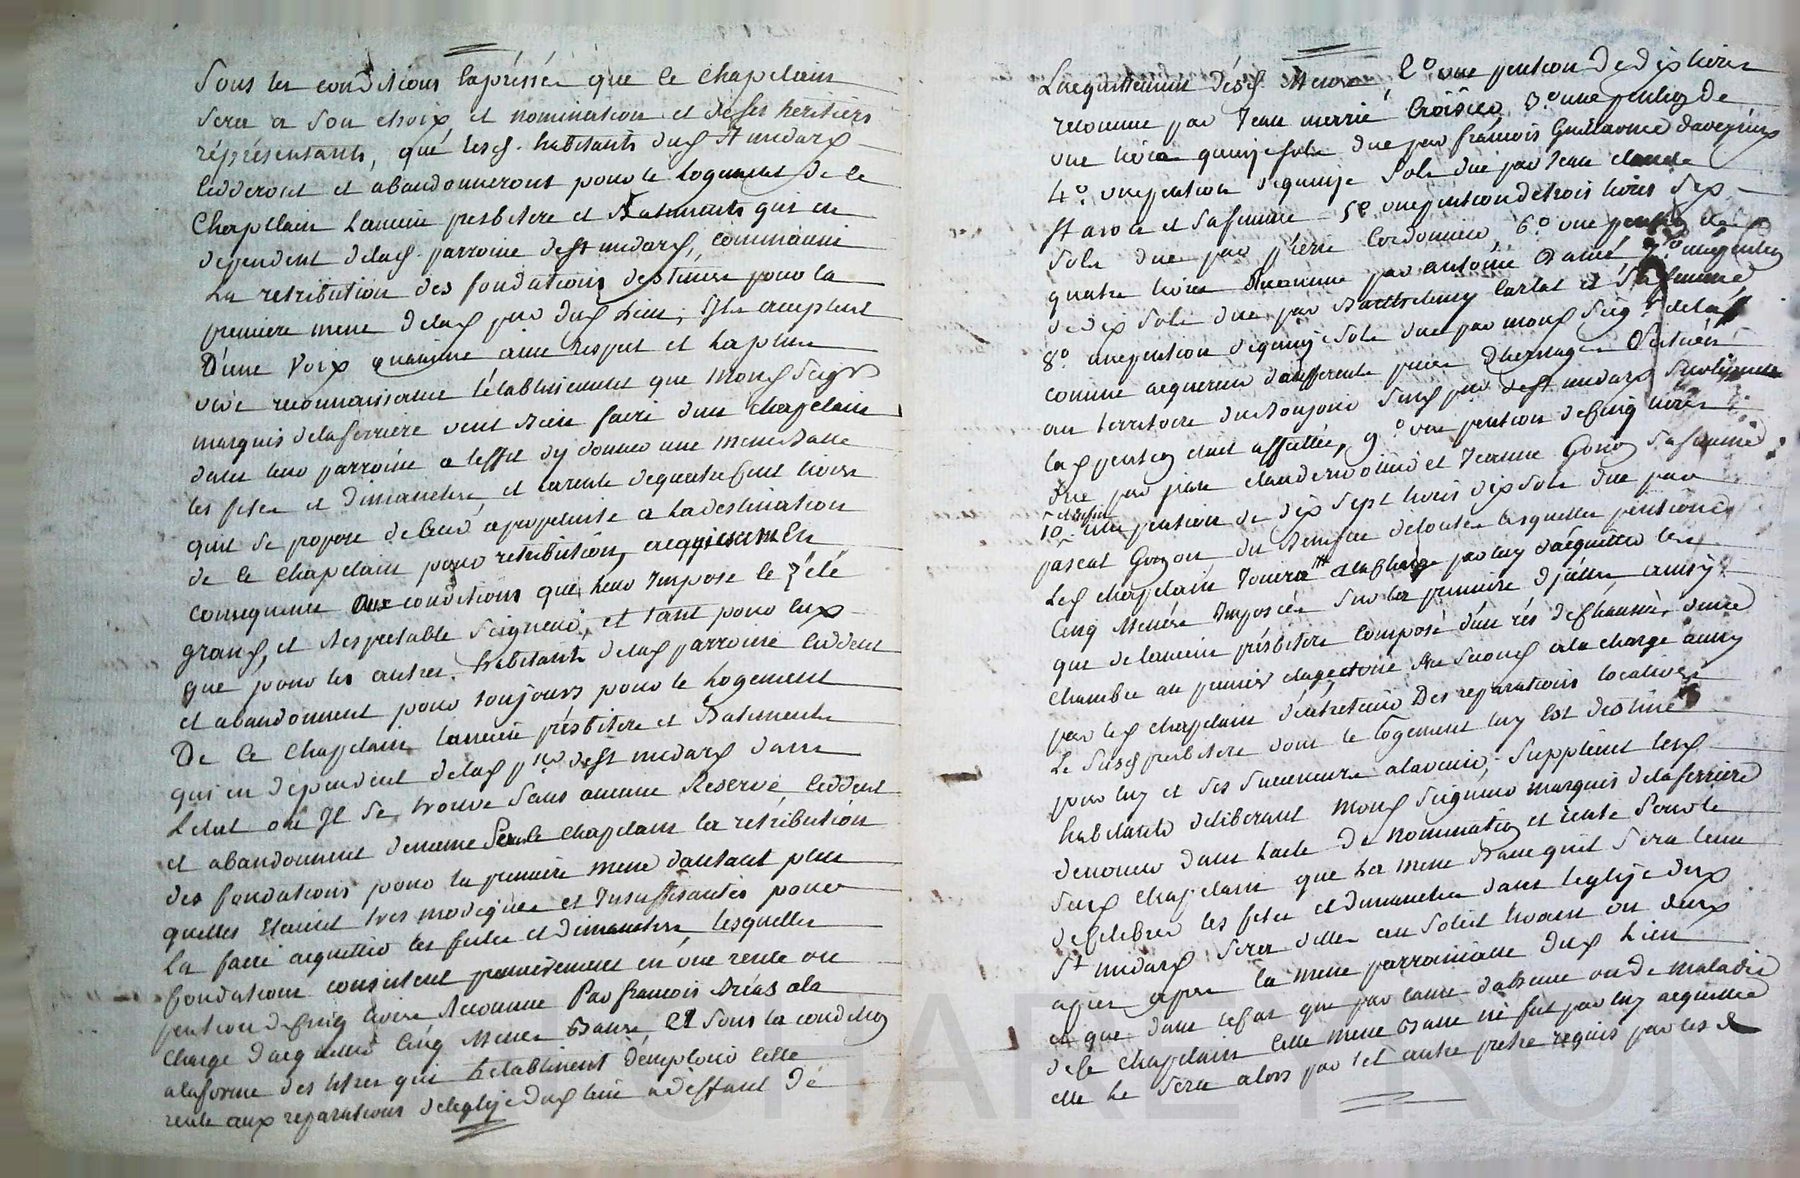 Sous les conditions Expressés que le Chapelain
Sera a Son choix et nomination et de ses heritiers
réprésentants, que lesd. habitants dud St medard
Cedderont et abandonneront pour le Logement de ce
Chapellain Lancien presbitere et Batiments qui en
dependent delad. parroisse de St medard, comm
La retribution des fondations destinées pour la
premiere messe delad par dud Lieu, Ils acceptent
D'une Voix unanime avec respect et La plus
vive reconnaissance l'établissement que Mond Seigr
marquis delaferriere veut Bien faire d'un chapelain
dans leur parroisse a leffet d'y donner une messe Basse
les fetes et dimanches, et la rente de quatre Cent livres
quil se propose de Ceder apropriété a La destination
de ce Chapelain pour retribution, acquiescent En
consequence Aux conditions que leur Impose le Zélé
grand, et Respectable Seigneur, et tant pour Eux
que pour les autres habitants delad parroisse Ceddent
et abandonnent pour toujours pour le Logement
De Ce Chapelain Lancien présbitere et Batiments
qui en dépendent delad psse de St medard dans
Letat ou Il Se trouve Sans aucune Reserve Ceddent
et abandonnent de meme chapelain la rétribution
des fondations pour la premiere messe d'autant plus
quelles Etaient tres modiques et Insuffisantes pour
La faire acquitter les fetes et dimanches, lesquelles
fondations consistent premierement en une rente ou
pention de Cinq livres Reconnue Par francois ala
Charge dacquitter Cinq Messes Basses et Sous la condition
alaforme des titres qui Letablissent d'employer Cette
rente aux reparations deleglise dud lieu adeffaut de
Lacquittement désd. Messes 2o. une pention de dix livres
reconnue par Jean 3o. une pention de
une livre quinze Sols due par françois Guillaume
4o. une pention de quinze Sols due par Jean claude
et Safemme 5e. une pention de trois livres dix
Sols due par pierre Cordonnier 6o. une pention de
quatre livres Reconnue par antoine 7o. une pention
de dix Sols due par Barthelemy et Safemme
8o. une pention de quinze Sols due par mond Seigr delaf
comme acquereur de differentes pieces D'heritages Scitués
au territoire du Sur lesquels
lad pention etait assise, 9o. une pention de Cinq livres
due par et Jeanne Safemme
10o. et Enfin une pention de dix Sept livres dix Sols due par
pascal de toutes lesquelles pentions
Led chapelain Jouira a la Charge par luy dacquitter les
Cinq Messes Imposées Sur la premiere d'icelles, ainsy
que de lancien présbitere Composé d'un rés de Chaussée, dune
Chambre au premier etage ala charge aussy
par led chapelain d'entretenir Des reparations locatives
Le Susd presbitere dont le Logement luy Est destiné
pour luy et Ses Successeurs alavenir, Supplient lesd
habitants deliberant Mond Seigneur Marquis delaferriere
denoncer dans Lacte De Nomination et rente Pour le
Sud Chapelain que La messe Basse quil Sera tenu
de Celebrer les fetes et dimanches dans leglise dud
St medard Sera ditte au Soleil levant ou deux
apres la messe parroissialle dud Lieu
et que dans le cas que par cause dabsence ou de maladie
de Ce chapelain Cette messe Basse ne fut par luy acquittée
elle Le Sera alors par tel autre pretre requis par lesd
CHAREYRON